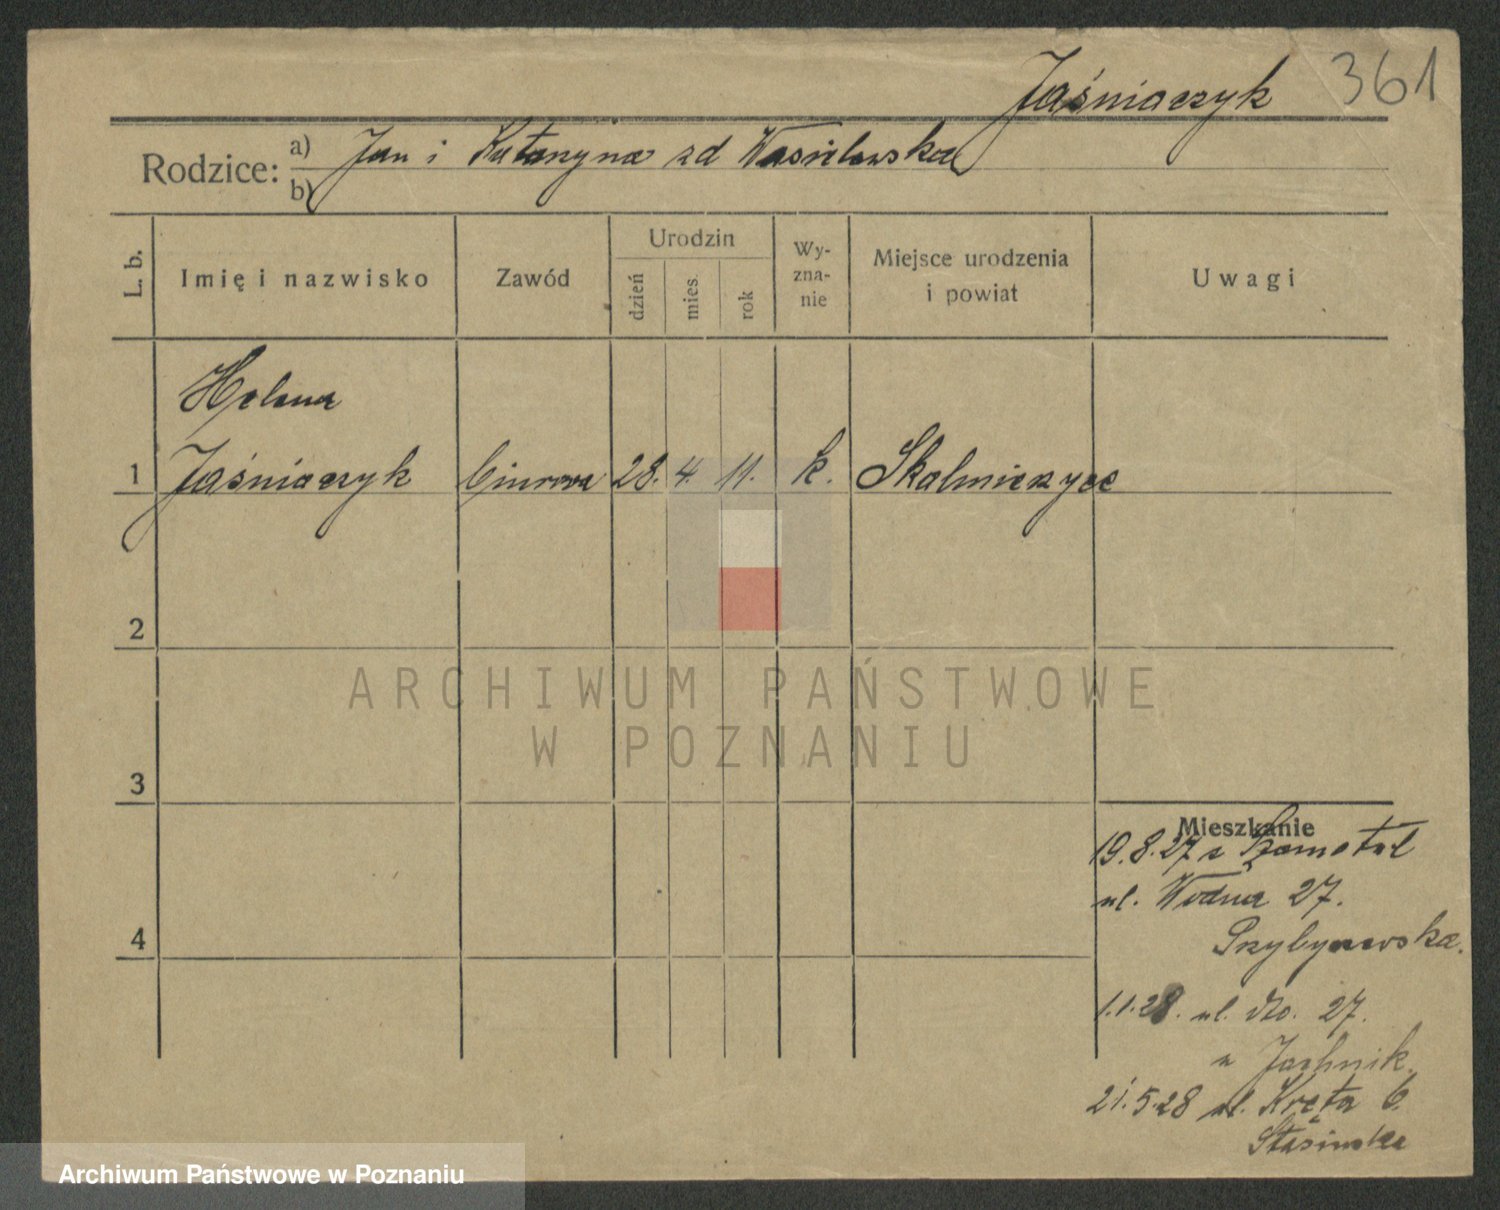 Jaśniaczyk 361
Rodzice: a) Jan i Katarzyna zd Wasielewska
b)
L. b. Imię i nazwisko Zawód Urodzin dzień mies. rok Wy-zna-nie Miejsce urodzenia i powiat Uwagi
Helena
1 Jaśniaczyk biurowa 28. 4. 11. k. Skalmierzyce
2
ARCHIWUM PAŃSTWOWE
W POZNANIU
3
Mieszkanie
19.8.27 z Szamotuł
ul. Wodna 27.
4
Przybyszewska.
1.1.28. ul. dto. 27.
u Jachnik.
21.5.28 ul. Kręta 6.
Stasińska
Archiwum Państwowe w Poznaniu